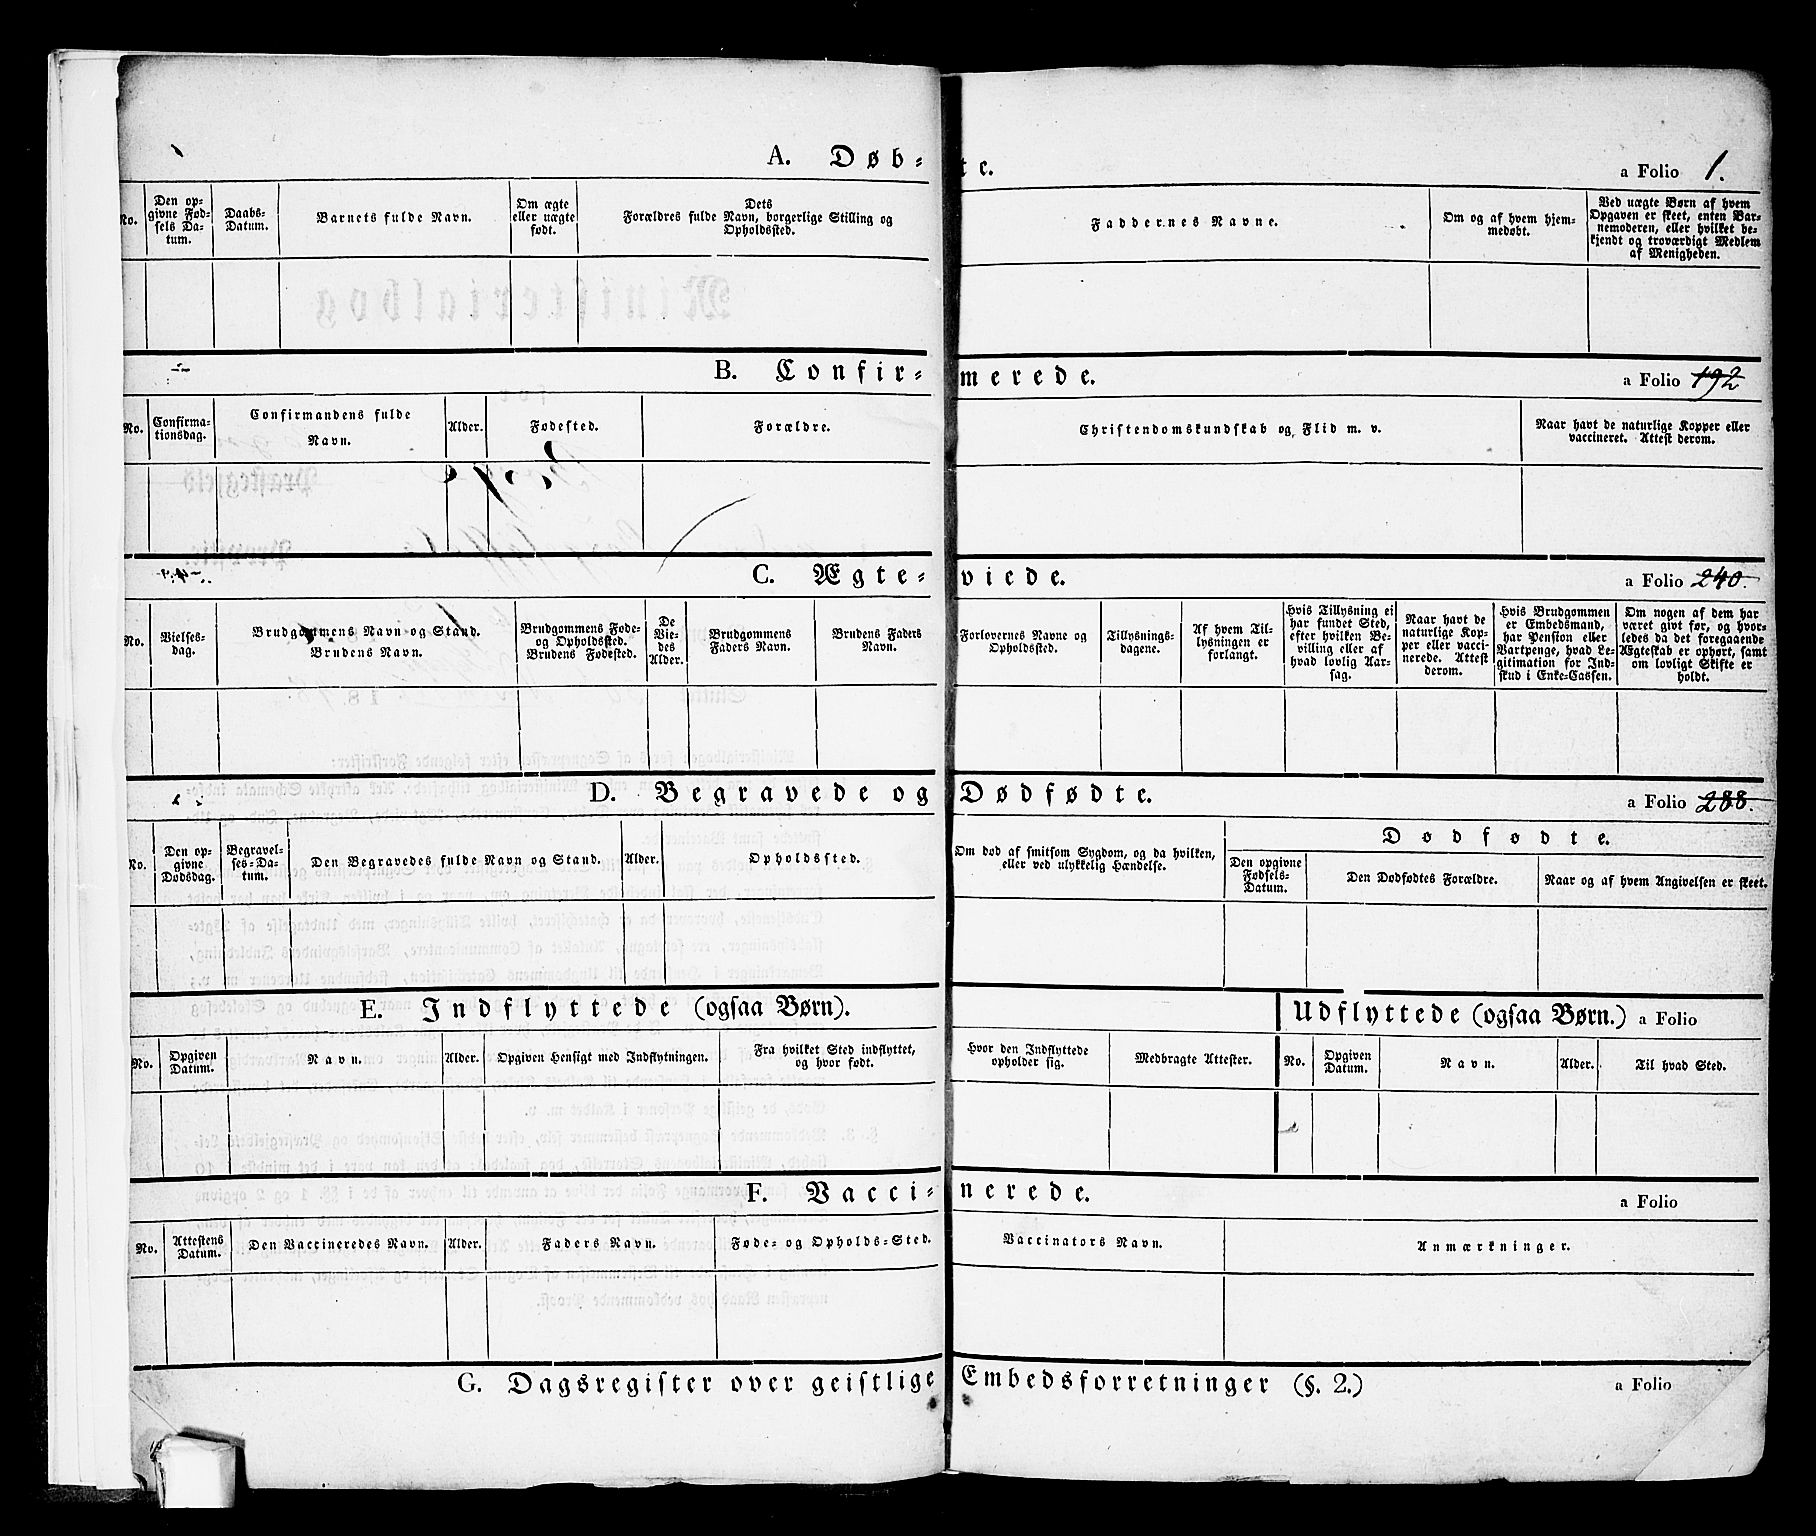 A. Døbte. a Folio 1.
No.
Den op-
givne Fød-
sels Da-
tum.
Daabs-
Datum.
Barnets fulde Navn.
Om ægte
eller uægte
født.
Dets
Forældres fulde Navn, borgerlige Stilling og
Opholdssted.
Faddernes Navne.
Om og af hvem hjem-
medøbt.
Ved uægte Børn af hvem
Opgaven er skeet, enten Bar-
nemoderen, eller hvilket be-
kjendt og troværdigt Medlem
af Menigheden.
B. Confirmerede. a Folio 192
No.
Confirma-
tionsdag.
Confirmandens fulde
Navn.
Alder.
Fødested.
Forældre.
Christendomskundskab og Flid m. v.
Naar havt de naturlige Kopper eller
vaccineret. Attest derom.
C. Ægteviede. a Folio 240.
No.
Vielses-
dag.
Brudgommens Navn og Stand.
Brudens Navn.
Brudgommens Føde-
og Opholdssted.
Brudens Fødested.
De
Vie-
des
Alder.
Brudgommens
Faders Navn.
Brudens Faders
Navn.
Forlovernes Navne og
Opholdssted.
Tillysnings-
dagene.
Af hvem Til-
lysningen er
forlangt.
Hvis Tillysning ei
har fundet Sted,
efter hvilken Be-
villing eller af
hvad lovlig Aar-
sag.
Naar havt de
naturlige Kop-
per eller vacci-
nerede. Attest
derom.
Hvis Brudgommen
er Embedsmand,
har Pension eller
Vartpenge, hvad Le-
gitimation for Ind-
skud i Enke-Cassen.
Om nogen af dem har
været givt før, og hvor-
ledes da det foregaaende
Ægteskab er ophørt, samt
om lovligt Skifte er
holdt.
D. Begravede og Dødfødte. a Folio 288.
No.
Den op-
givne
Dødsdag.
Begravel-
ses-Da-
tum.
Den Begravedes fulde Navn og Stand.
Alder.
Opholdssted.
Om død af smitsom Sygdom, og da hvilken,
eller ved ulykkelig Hændelse.
Dødfødte.
Den opgivne
Fødsels-
Datum.
Den Dødfødtes Forældre.
Naar og af hvem Angivelsen er skeet.
E. Indflyttede (ogsaa Børn).
Udflyttede (ogsaa Børn.) a Folio
No.
Opgiven
Datum.
Navn.
Alder.
Opgiven Hensigt med Indflytningen.
Fra hvilket Sted indflyttet,
og hvor født.
Hvor den Indflyttede
opholder sig.
Medbragte Attester.
No.
Opgiven
Datum.
Navn.
Alder.
Til hvad Sted.
F. Vaccinerede. a Folio
No.
Attestens
Datum.
Den Vaccineredes Navn.
Alder.
Faders Navn.
Føde- og Opholds-Sted.
Vaccinators Navn.
Anmærkninger.
G. Dagsregister over geistlige Embedsforretninger (§. 2.) a Folio